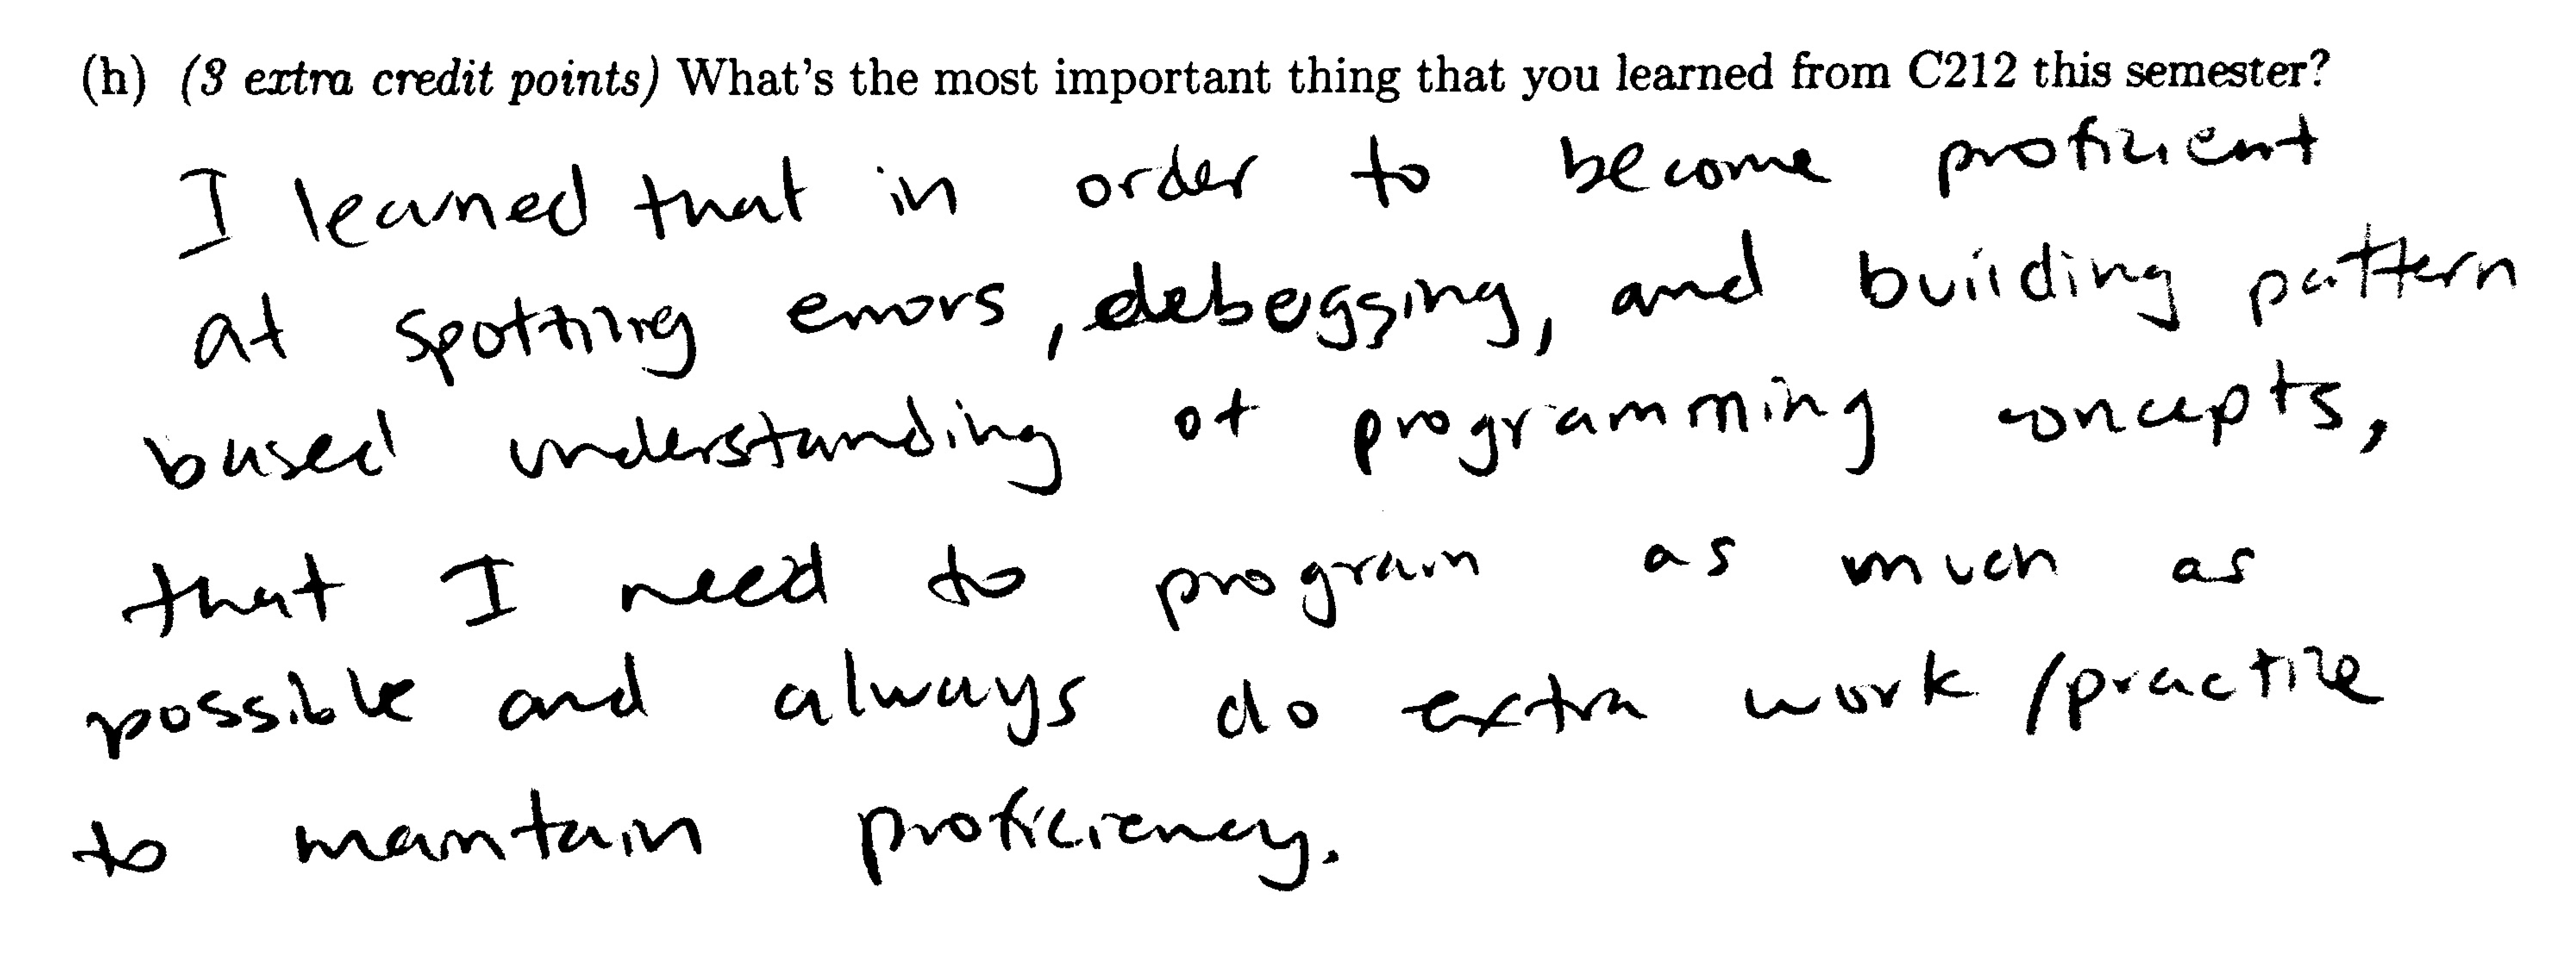 (h) (3 extra credit points) What's the most important thing that you learned from C212 this semester?
I learned that in order to become proficient
at spotting errors, debugging, and building pattern
based understanding of programming concepts,
that I need to program as much as
possible and always do extra work/practice
to maintain proficiency.